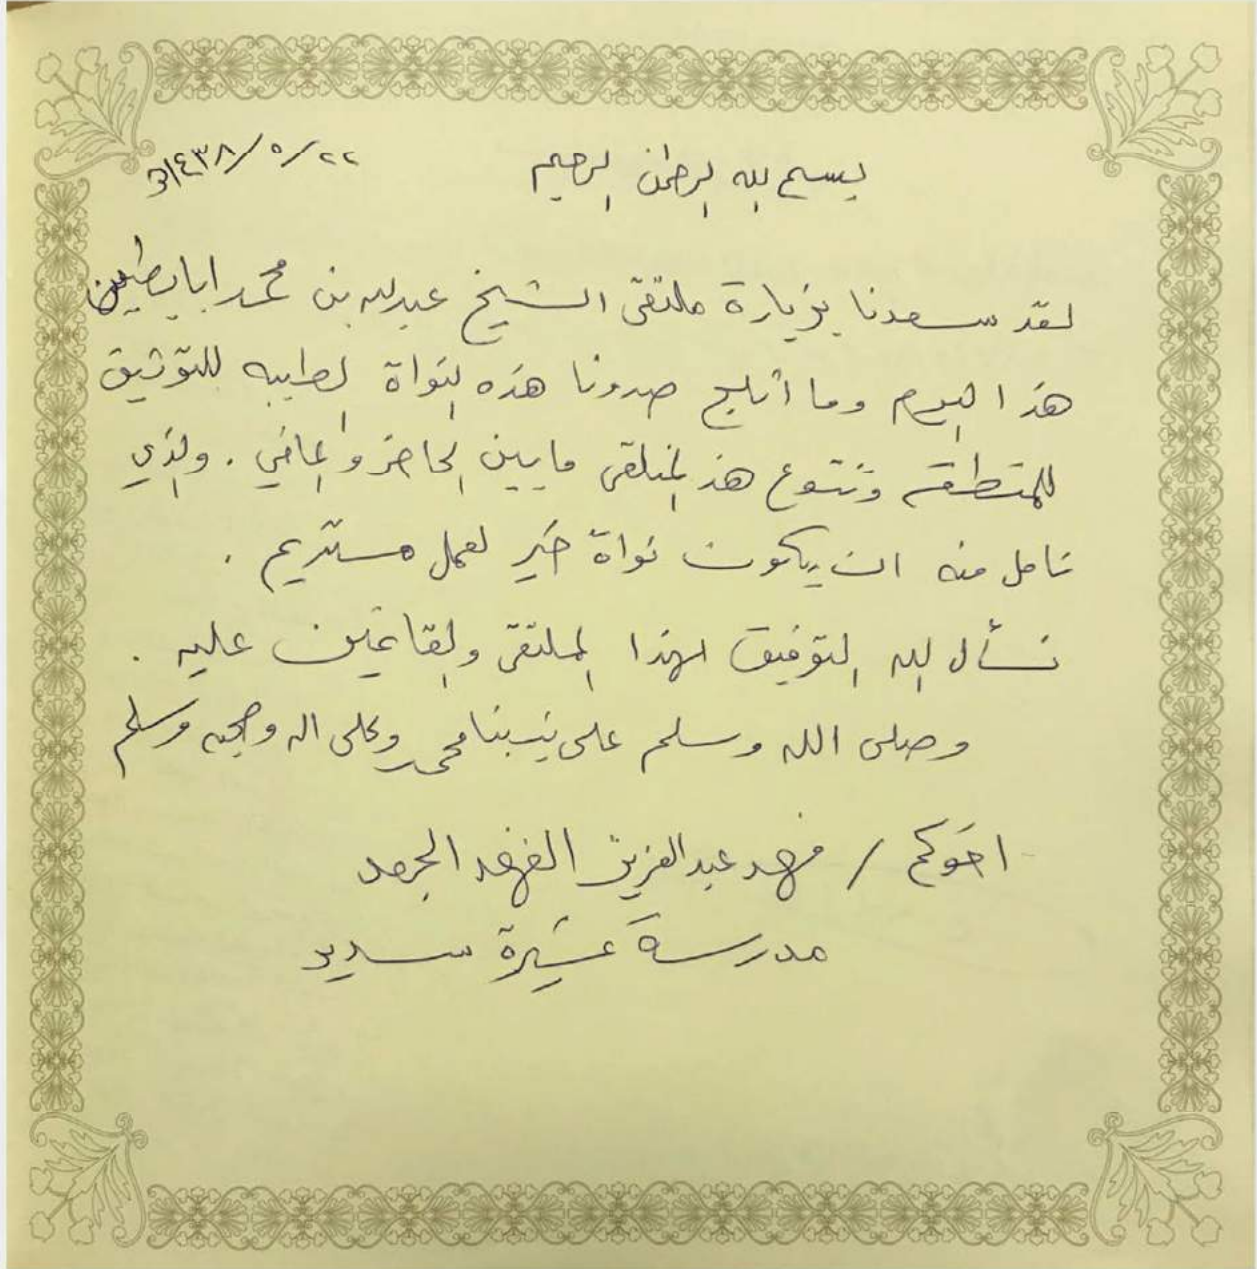 بسم الله الرحمن الرحيم ٢٢/٥/١٤٣٨هـ
لقد سعدنا بزيارة ملتقى الشيخ عبدالله بن محمد ابابطين
هذا اليوم وما أثلج صدرونا هذه النواة الطيبه للتوثيق
للمنطقة وتنوع هذ الملتقى مابين الحاضر والماضي . والذي
نامل منه ان يكون نواة خير لعمل مستديم .
نسأل الله التوفيق لهذا الملتقى والقائمين عليه .
وصلى الله وسلم على نبينا محمد وعلى اله وصحبه وسلم
اخوكم / فهد عبدالعزيز الفهد الحمد
مدرسة عشيرة سدير